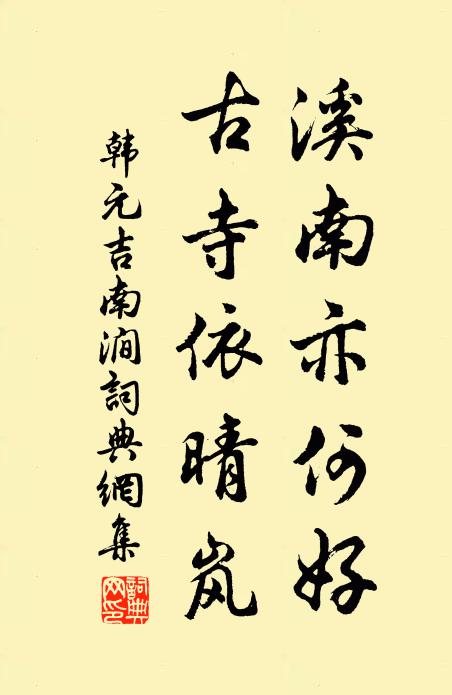 溪南亦何好
古寺依晴岚
韩元吉南涧詞典網集
詞典网印